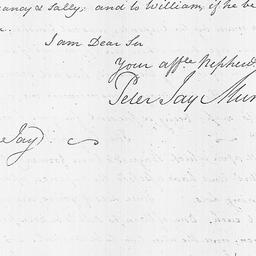 ancy & Sally; and to William, if he be
I am Dear Sir
Your affte. Nephew
Peter Jay Mun
Jay)